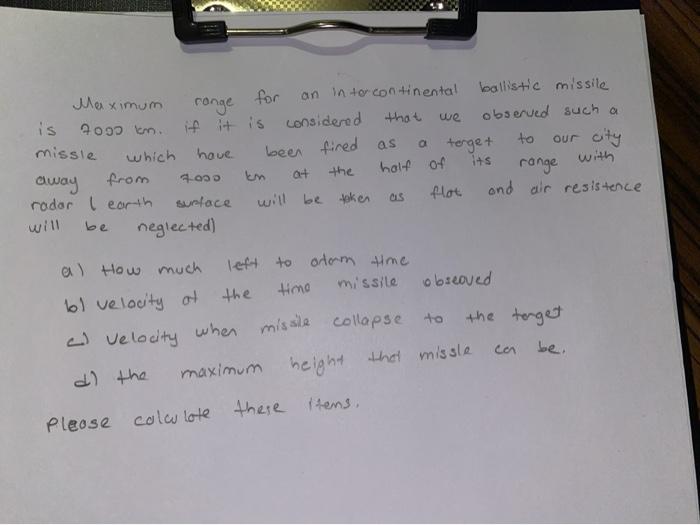 Maximum range for an intercontinental ballistic missile
is 7000 km. if it is considered that we observed such a
missle which have been fired as a terget to our city
away from 7000 km at the half of its range with
radar ( earth surface will be token as flat and air resistence
will be neglected)
a) How much left to alarm time
b) velocity at the time missile obseoved
c) velocity when missile collapse to the terget
d) the maximum height that missle can be.
Please calculate these items.